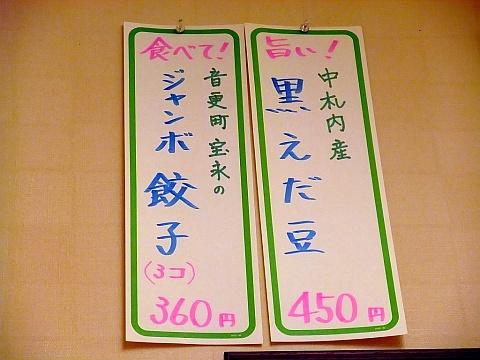 旨い!
中札内産
黒えだ豆
450円
食べて!
音更町宝永の
ジャンボ餃子
(3コ)
360円